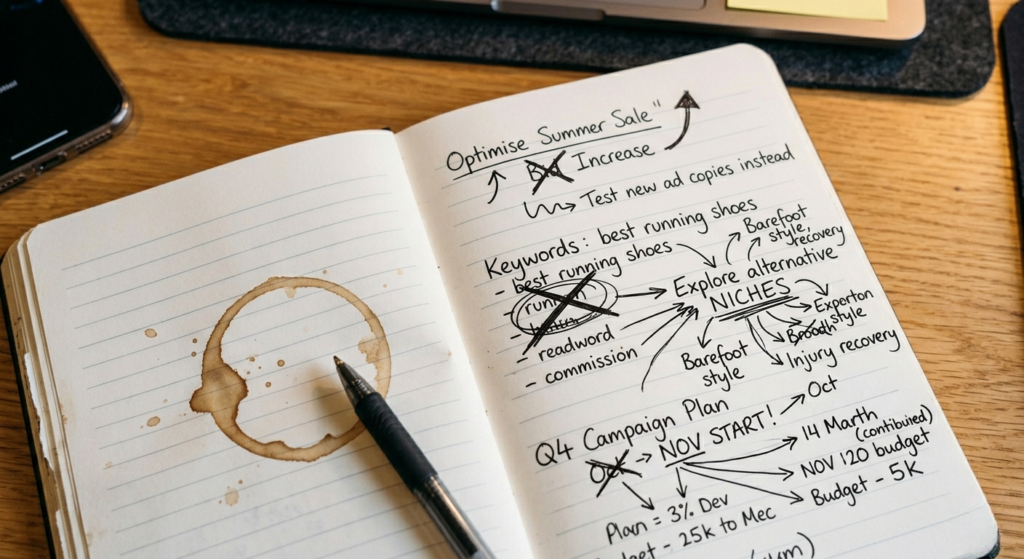 Optimise Summer Sale"
Increase
Test new ad copies instead
Keywords: best running shoes
- best running shoes
- readword
- commission
Explore alternative
NICHES
Barefoot
style,
recovery
Experton
style
Injury recovery
Barefoot
style
Q4 Campaign Plan
Oct → NOV START! → Oct
14 Marth
(contibuired)
NOV 120 budget
Budget - 5k
Plan = 3% Dev
- 25k to Mec